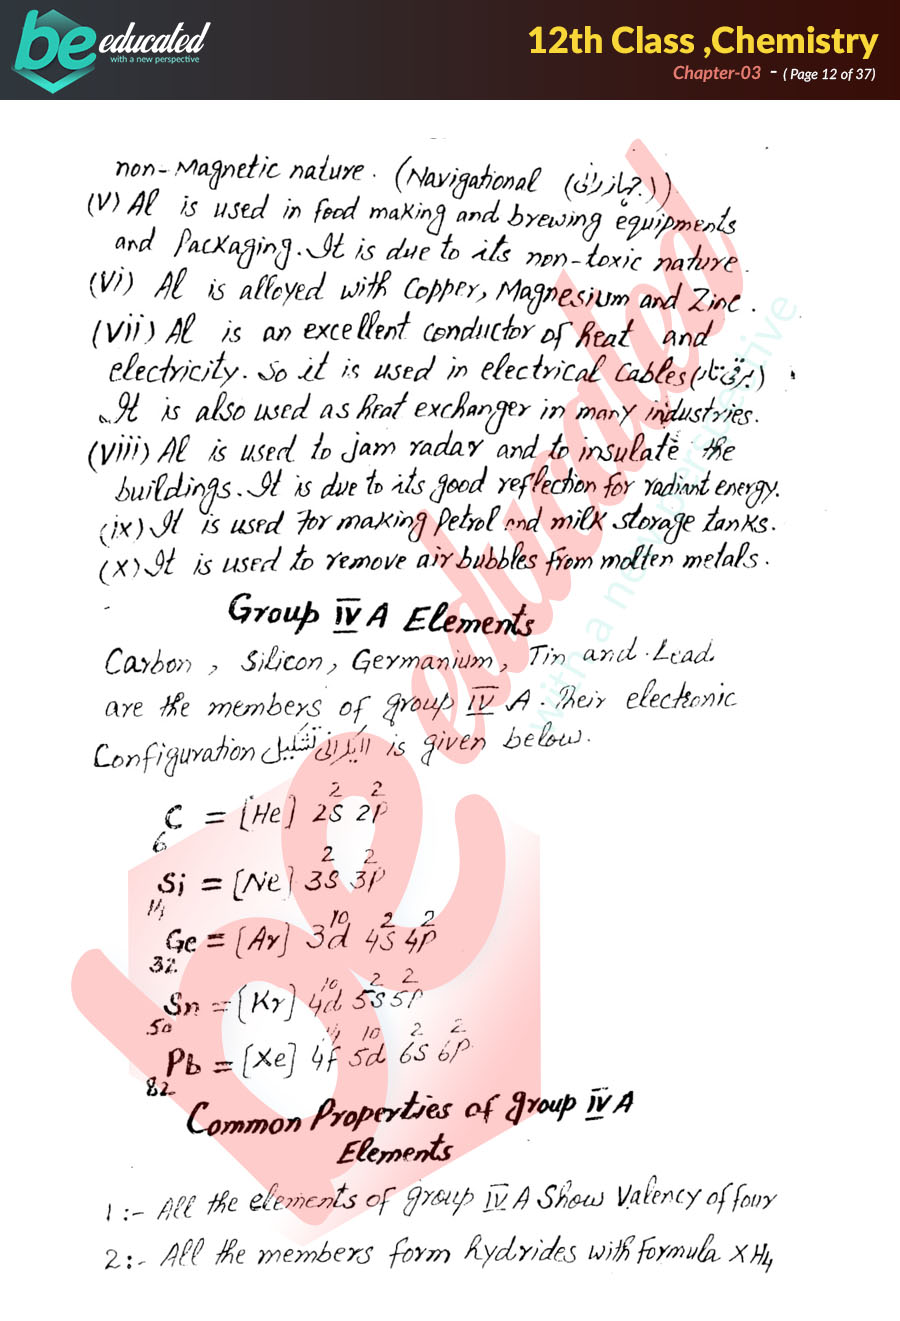 be educated
with a new perspective
12th Class ,Chemistry
Chapter-03 - ( Page 12 of 37)
non-Magnetic nature. (Navigational (جہازرانی))
(V) Al is used in food making and brewing equipments
and Packaging. It is due to its non-toxic nature.
(Vi) Al is alloyed with Copper, Magnesium and Zinc.
(Vii) Al is an excellent conductor of heat and
electricity. So it is used in electrical Cables (برقی تار)
It is also used as heat exchanger in many industries.
(Viii) Al is used to jam radar and to insulate the
buildings. It is due to its good reflection for radiant energy.
(ix) It is used for making Petrol and milk storage tanks.
(X) It is used to remove air bubbles from molten metals.
Group IV A Elements
Carbon, Silicon, Germanium, Tin and Lead.
are the members of group IV A. Their electronic
Configuration الیکٹرانی تشکیل is given below.
₆C = [He] 2s² 2p²
₁₄Si = [Ne] 3s² 3p²
₃₂Ge = [Ar] 3d¹⁰ 4s² 4p²
₅₀Sn = [Kr] 4d¹⁰ 5s² 5p²
₈₂Pb = [Xe] 4f¹⁴ 5d¹⁰ 6s² 6p²
Common Properties of group IV A
Elements
1:- All the elements of group IV A Show Valency of four
2:- All the members form hydrides with Formula XH₄
be educated
with a new perspective